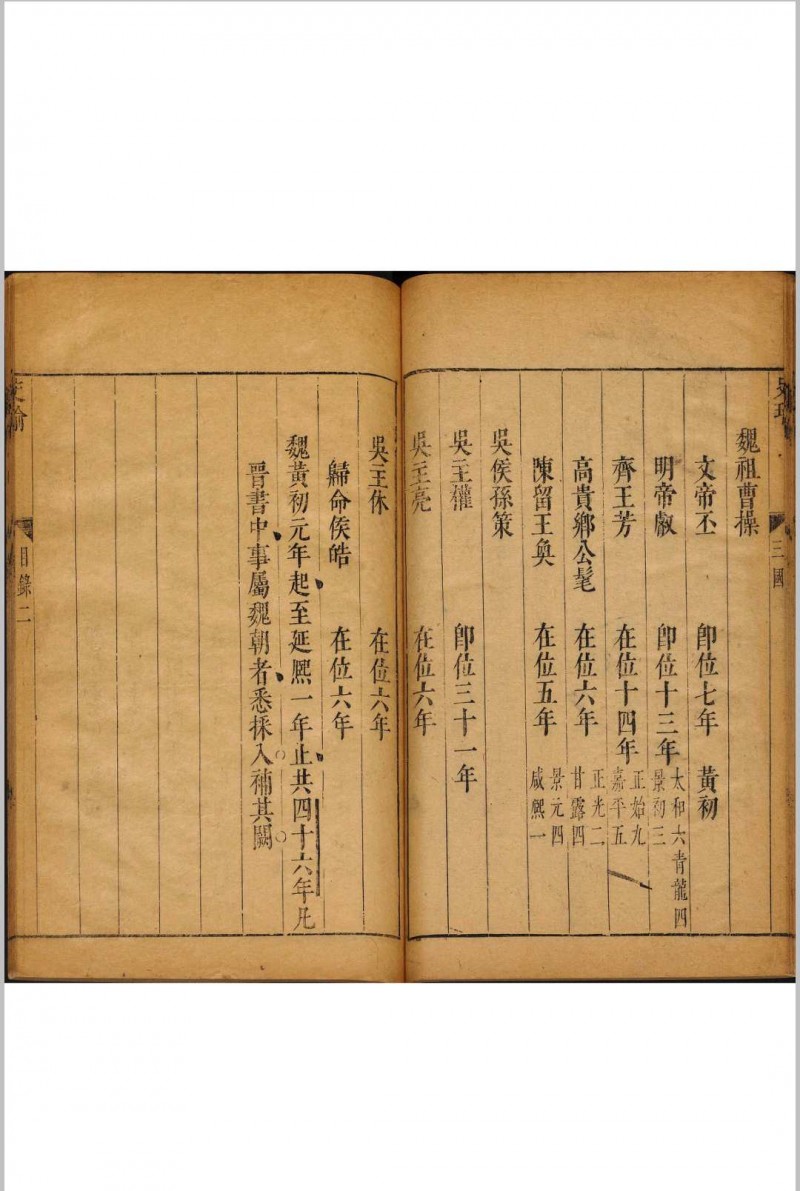 三國
魏祖曹操
文帝丕 即位七年 黃初
明帝叡 即位十三年 太和六青龍四
景初三
齊王芳 在位十四年 正始九
嘉平五
高貴鄉公髦 在位六年 正光二
甘露四
陳留王奐 在位五年 景元四
咸熙一
吳侯孫策
吳主權 即位三十一年
吳主亮 在位六年
吳主休 在位六年
歸命侯皓 在位六年
魏黃初元年起至延熙一年止共四十六年凡
晉書中事屬魏朝者悉採入補其闕
目錄二